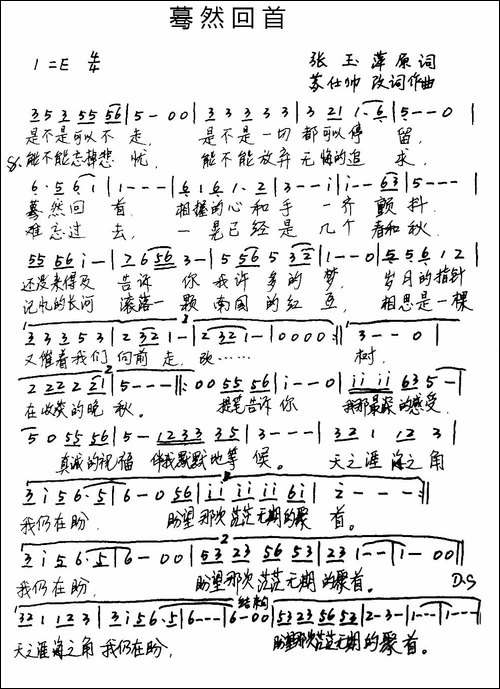 蓦然回首
1=E 4/4
张玉萍原词
苏仕帅 改词作曲
3 5 3 5 5 5 6 | 5 - 0 0 | 3 3 3 3 3 | 3 2 1 1 · 6 | 5 - - 0 |
是不是可以不 走, 是不是一切都可以停 留,
能不能忘掉悲 忧, 能不能放弃无悔的追 求,
6 · 5 6 1 | 1 - - - | 6 1 6 1 · 2 | 3 - - i | i - - 6 3 | 5 - - - |
蓦然回 首, 相握的心和手 一齐颤抖.
难忘过 去, 一晃已经是几个春和秋.
5 5 5 6 i - | 2 6 5 6 3 - | 5 5 6 5 3 2 | 1 - - 0 | 5 5 6 1 2 |
还没来得及 告诉 你 我许多的 梦, 岁月的指针
记忆的长河 滚落一 颗 南国的红 豆, 相思是一棵
3 3 3 5 3 | 2 3 2 1 - | 2 3 2 1 - | 0 0 0 0 :|| 3 - - 0 |
又催着我们 向前 走, 欧…… 树,
2 2 2 2 2 1 | 5 - - - :|| 0 0 5 5 5 6 | i - - 0 | i i i i 6 3 5 - |
在收获的晚 秋。 提笔告诉 你 我那最深的感受,
5 0 5 5 5 6 | 5 - 1 2 3 3 3 5 | 3 - - - | 3 2 1 1 2 3 |
真诚的祝福 伴我默默地等 候。 天之涯 海之角
3 i 5 6 · 5 | 6 - 0 5 6 | i i i i i i 6 i | 2 - - - :||
我仍在盼. 盼望那次茫茫无期的聚 首。
3 i 5 6 · 5 | 6 - 0 0 | 5 3 2 3 5 6 5 3 | 2 3 1 - - | 1 - 0 0 ||
我仍在盼. 盼望那次茫茫无期的聚首。 D.S
结束句
3 2 1 1 2 3 | 3 i 5 6 · 5 | 6 - - - | 6 - 0 0 | 5 3 2 3 5 6 5 3 | 2 - 3 - | 1 - - - | 1 - - - ||
天之涯海之角 我仍在盼, 盼望那次茫茫无期的聚首。